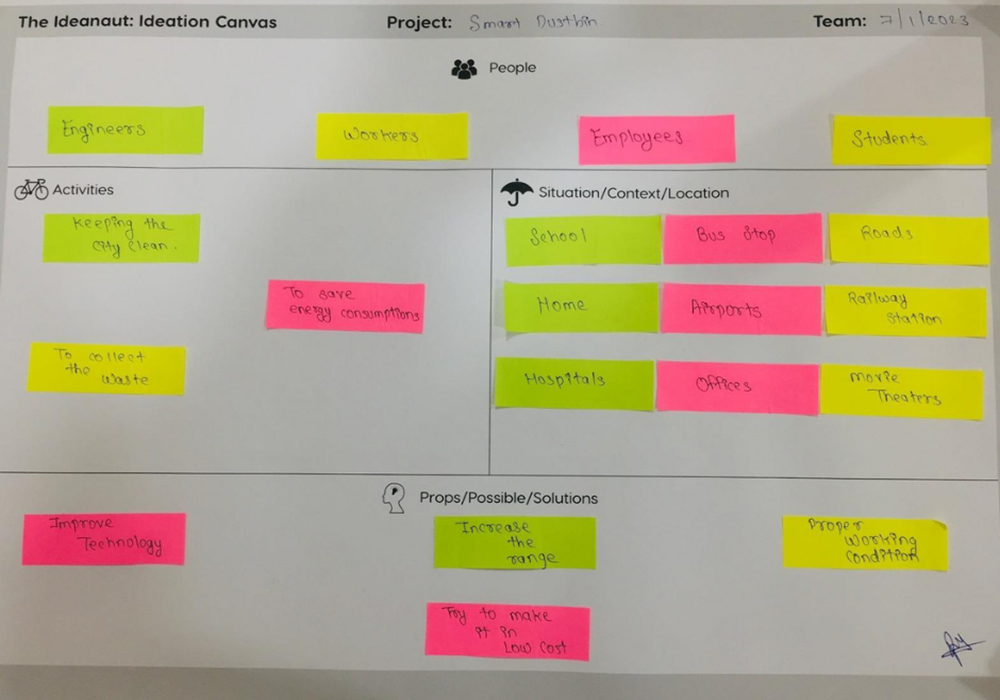 The Ideanaut: Ideation Canvas Project: Smart Dustbin Team: 7/1/2023
People
Engineers
Workers
Employees
Students
Activities
Keeping the
City Clean.
To save
energy consumptions
To collect
the
Waste
Situation/Context/Location
School
Bus Stop
Roads
Home
Airports
Railway
Station
Hospitals
Offices
Movie
Theaters
Props/Possible/Solutions
Improve
Technology
Increase
the
range
Proper
Working
Condition
Try to make
it in
Low Cost